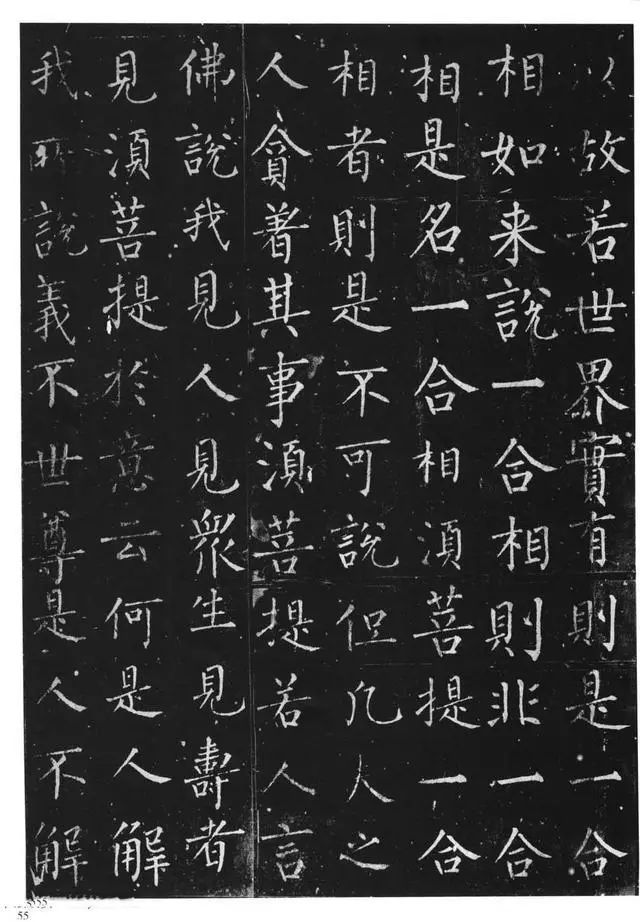 以故若世界實有則是一合
相如来說一合相則非一合
相是名一合相湏菩提一合
相者則是不可說但凡人之
人貪著其事湏菩提若人言
佛說我見人見眾生見壽者
見湏菩提於意云何是人解
我所說義不世尊是人不解
55